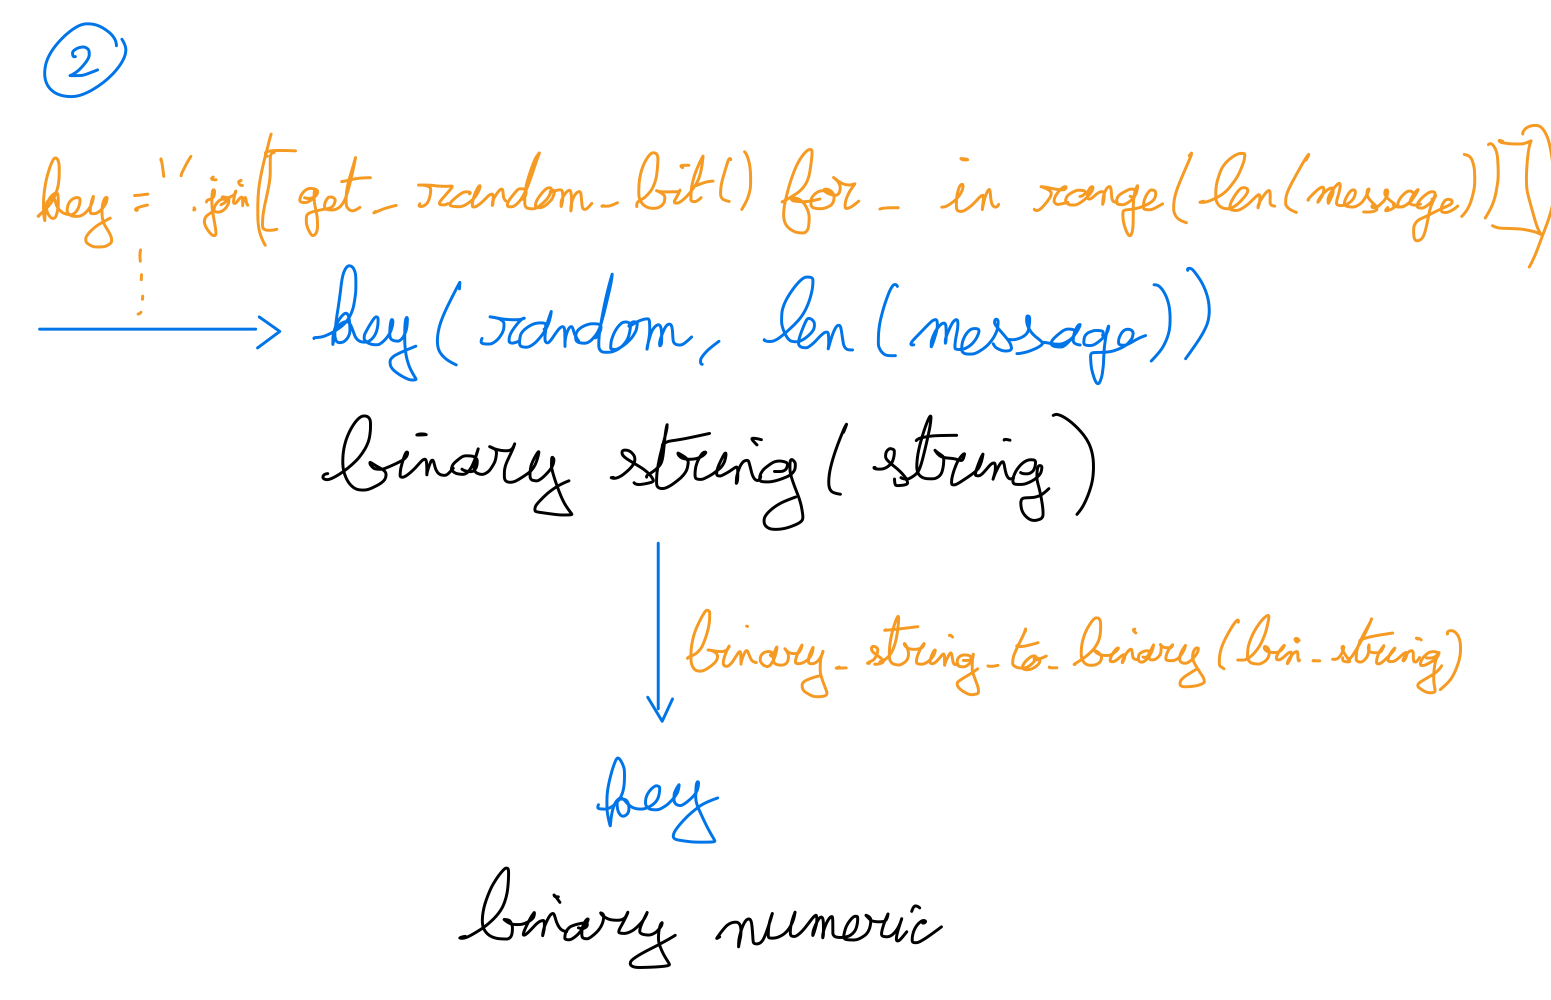 2
key = ''.join([get_random_bit() for _ in range(len(message))])
key(random, len(message))
binary string(string)
binary_string_to_binary(bin_string)
key
binary numeric